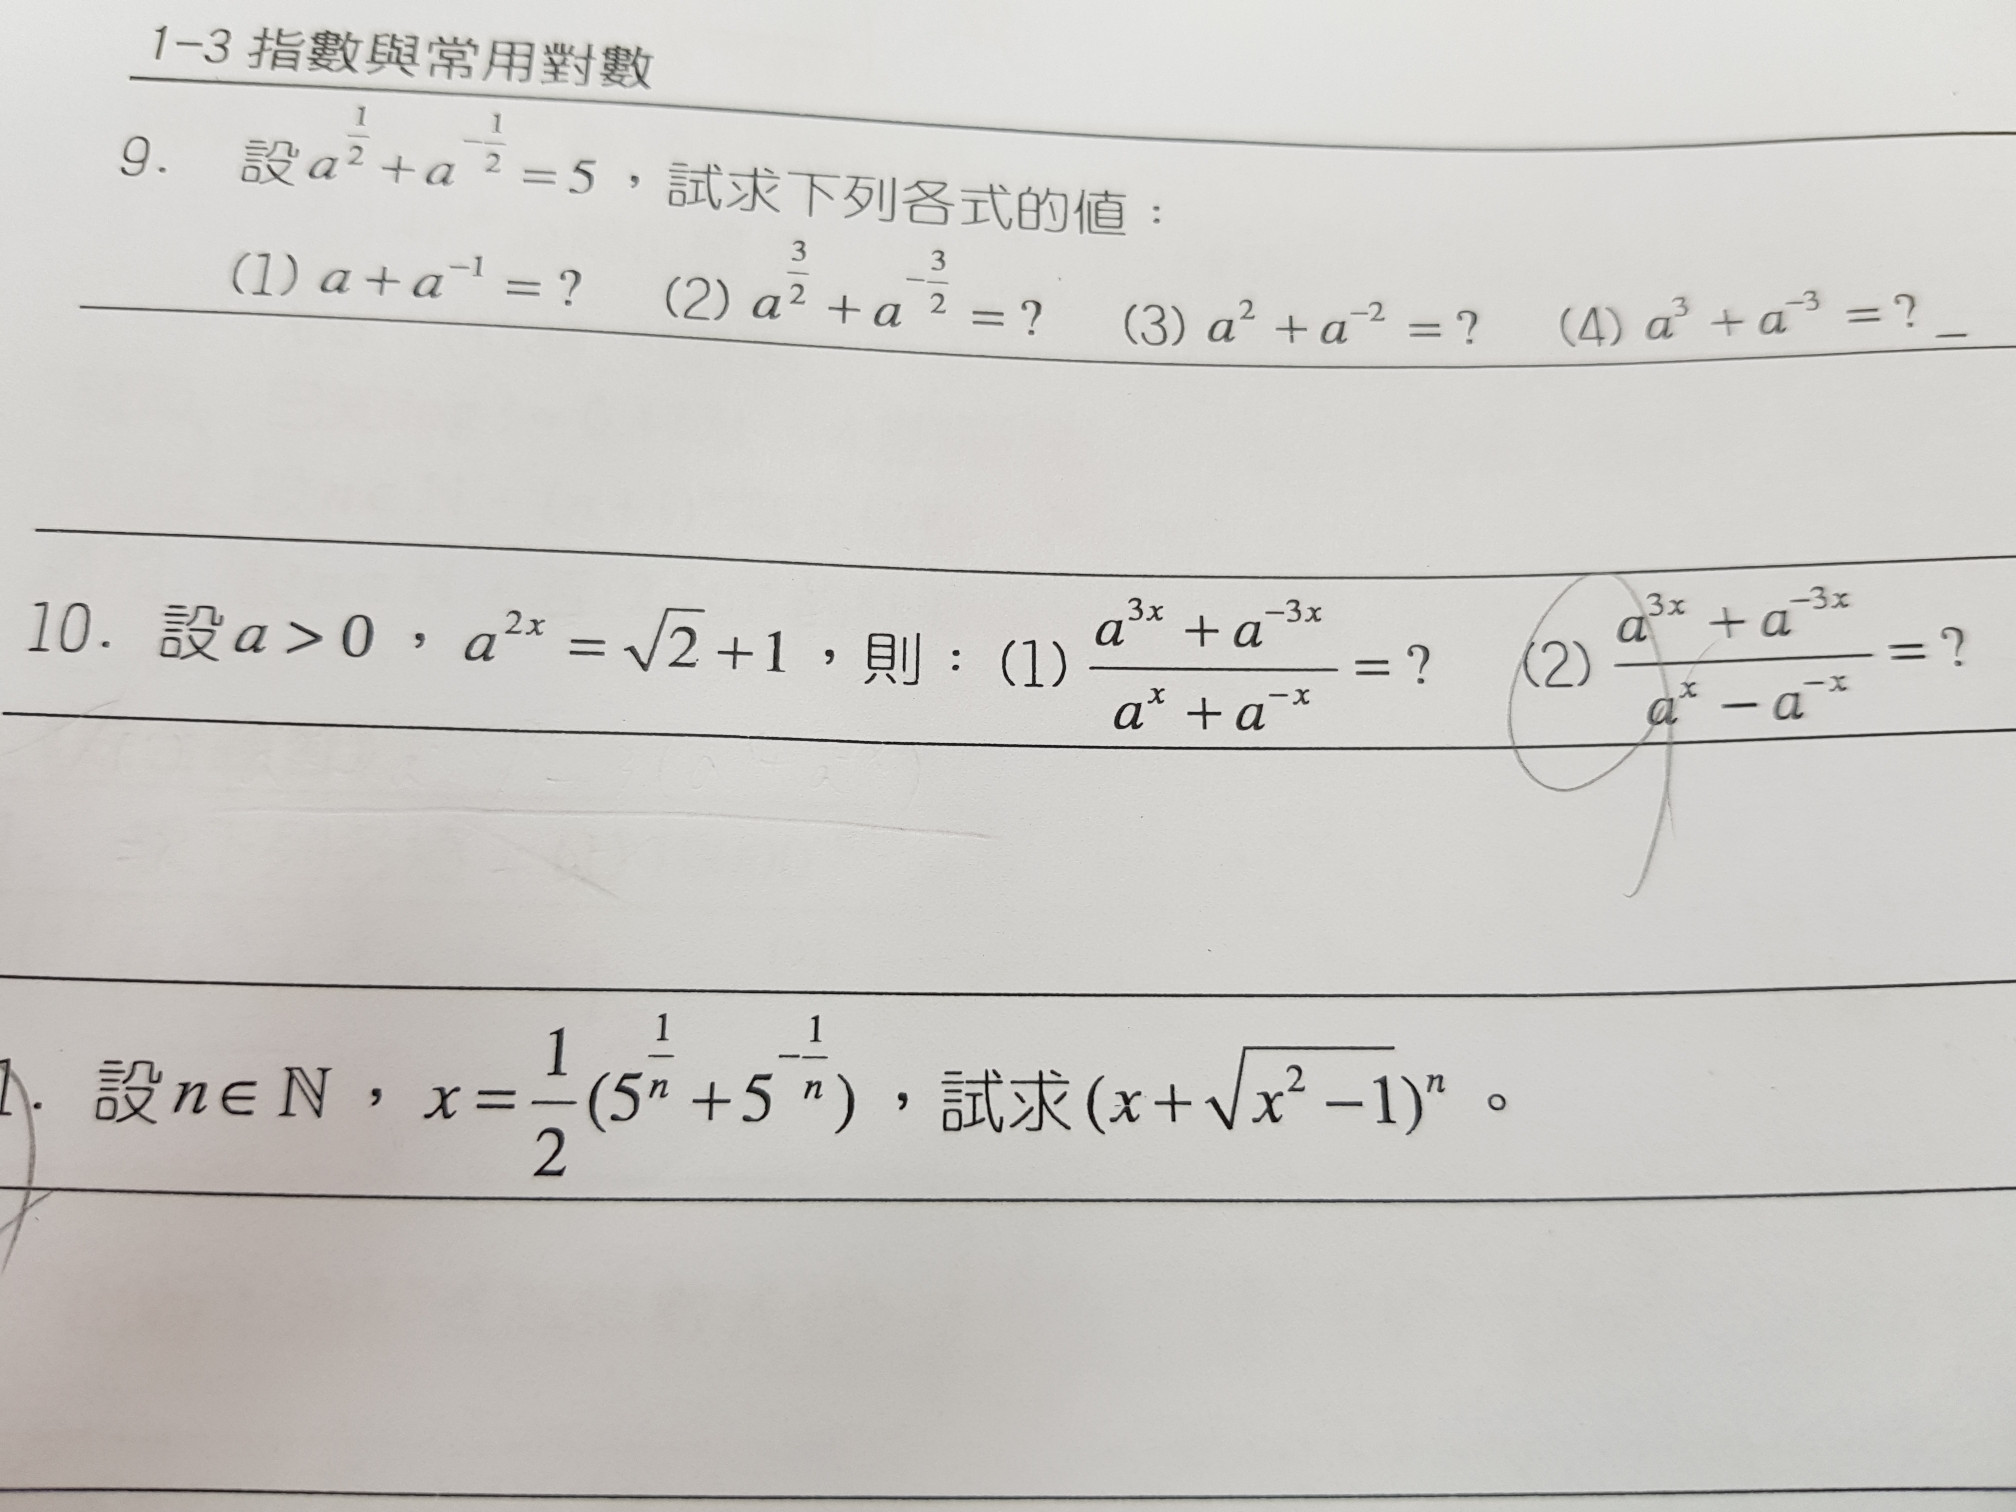 1-3 指數與常用對數
9. 設 a^{\frac{1}{2}} + a^{-\frac{1}{2}} = 5，試求下列各式的值：
(1) a + a^{-1} = ? (2) a^{\frac{3}{2}} + a^{-\frac{3}{2}} = ? (3) a^2 + a^{-2} = ? (4) a^3 + a^{-3} = ? _
10. 設 a > 0，a^{2x} = \sqrt{2} + 1，則：(1) \frac{a^{3x} + a^{-3x}}{a^x + a^{-x}} = ? (2) \frac{a^{3x} + a^{-3x}}{a^x - a^{-x}} = ?
1. 設 n ∈ ℕ，x = \frac{1}{2}(5^{\frac{1}{n}} + 5^{-\frac{1}{n}})，試求 (x + \sqrt{x^2 - 1})^n。